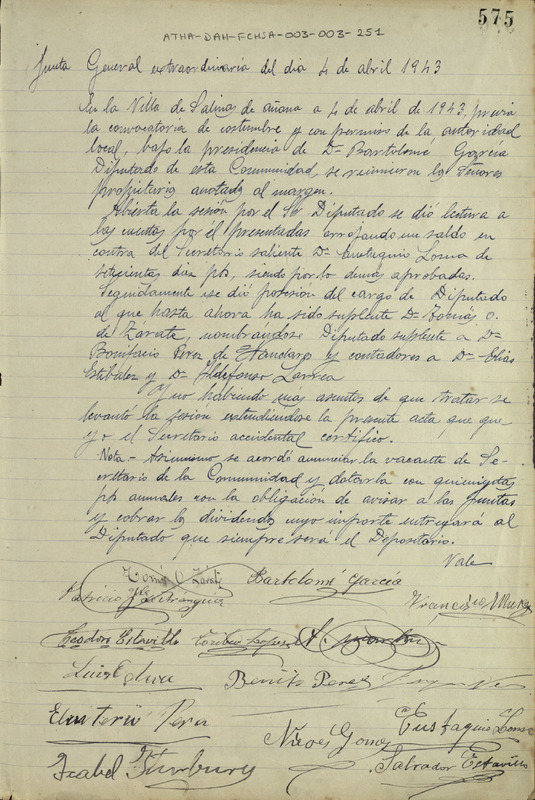 575
ATHA-DAH-FCHSA-003-003-251
Junta General extraordinaria del dia 4 de abril 1943
En la Villa de Salinas de Añana a 4 de abril de 1943, previa
la convocatoria de costumbre y con permiso de la autoridad
local, bajo la presidencia de Dn Bartolomé García
Diputado de esta Comunidad, se reunieron los Señores
propietarios anotados al margen.
Abierta la sesión por el Sr Diputado se dió lectura a
las cuentas por él presentadas arrojando un saldo en
contra del Secretario saliente Dn Eustaquio Loma de
setecientas dos pts, siendo por lo demás aprobadas.
Seguidamente se dió posesión del cargo de Diputado
al que hasta ahora ha sido suplente Dn Tomás O.
de Zarate, nombrándose Diputado suplente a Dn
Bonifacio Perez de Nanclares y contadores a Dn Elias
Estibalez y Dn Ildefonso Larrea
Y no habiendo más asuntos de que tratar se
levantó la sesión extendiéndose la presente acta, que
yo el Secretario accidental certifico.
Nota - Asimismo se acordó anunciar la vacante de Se-
cretario de la Comunidad y dotarla con quinientas
pts anuales con la obligación de avisar a las juntas
y cobrar los dividendos cuyo importe entregará al
Diputado que siempre será el Depositario.
Vale
Tomás O. Zárate Bartolomé García
Patricio Francisco
Teodoro Estavillo Toribio
Luis Benito Perez
Eleuterio Perez Eustaquio Loma
Nieves Gomez
Isabel Salvador Estavillo